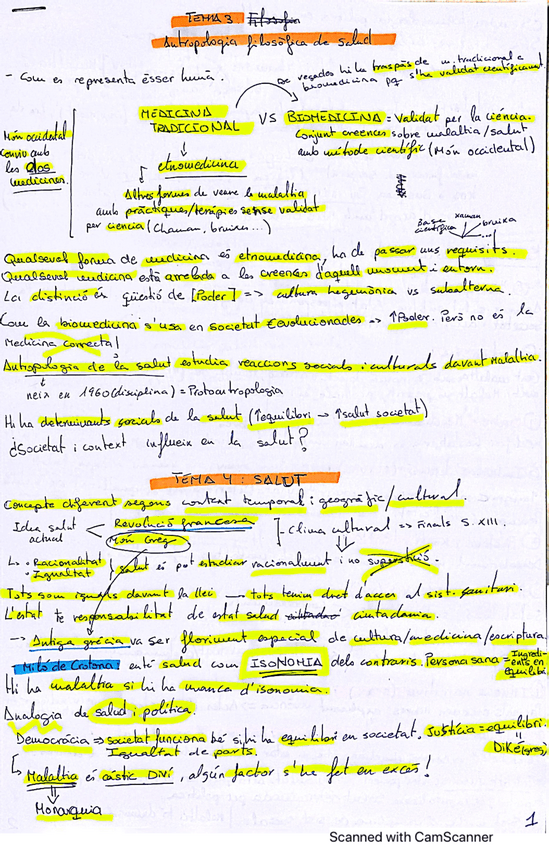 TEMA 3 Filosofia
Antropologia filosòfica de salut
- Com es representa ésser humà.
De vegades hi ha traspàs de m. tradicional a
biomedicina pq s'ha validat científicament.
MEDICINA
TRADICIONAL
VS BIOMEDICINA = Validat per la ciència.
conjunt creences sobre malaltia/salut
amb mètode científic (Món occidental)
Món occidental
conviu amb
les dos
medicines.
etnomedicina
Altres formes de veure la malaltia
amb pràctiques/teràpies sense validat
per ciencia (Chaman, bruixes...)
Base
científica
xaman
bruixa
...
Qualsevol forma de medicina és etnomedicina, ha de passar uns requisits.
Qualsevol medicina està arrelada a les creences d'aquell moment i entorn.
La distinció és qüestió de [Poder] => cultura hegemònica vs subalterna.
Com la biomedicina s'usa en societat evolucionades → ↑Poder. Però no és la
Medicina correcta!
Antropologia de la salut estudia reaccions socials i culturals davant malaltia.
neix en 1960 (disciplina) = Protoantropologia
Hi ha determinants socials de la salut (↑equilibri → ↑salut societat)
¿Societat i context influeix en la salut?
TEMA 4: SALUT
Concepte diferent segons context temporal i geogràfic/cultural.
Idea salut
actual
Revolució francesa
Món Greg
Clima cultural => Finals S. XIII.
↳ · Racionalitat
· Igualtat
salut es pot estudiar racionalment i no superstició.
Tots som iguals davant la llei — tots tenim dret d'accés al sist. sanitari.
L'estat té responsabilitat de estat salut ciutadana ciutadania.
→ Antiga grècia va ser floriment especial de cultura/medicina/escriptura.
Milo de Crotona: enté salud com ISONOMIA dels contraris. Persona sana = Ingredi-
ents en
equilibri.
Hi ha malaltia si hi ha manca d'isonomia.
Analogia de salud i política.
Democràcia => societat funciona bé si hi ha equilibri en societat. Justícia = equilibri.
Igualtat de parts.
Diké (greg)
Malaltia és càstic DIVÍ, algún factor s'ha fet en excés!
Monarquia
1
Scanned with CamScanner